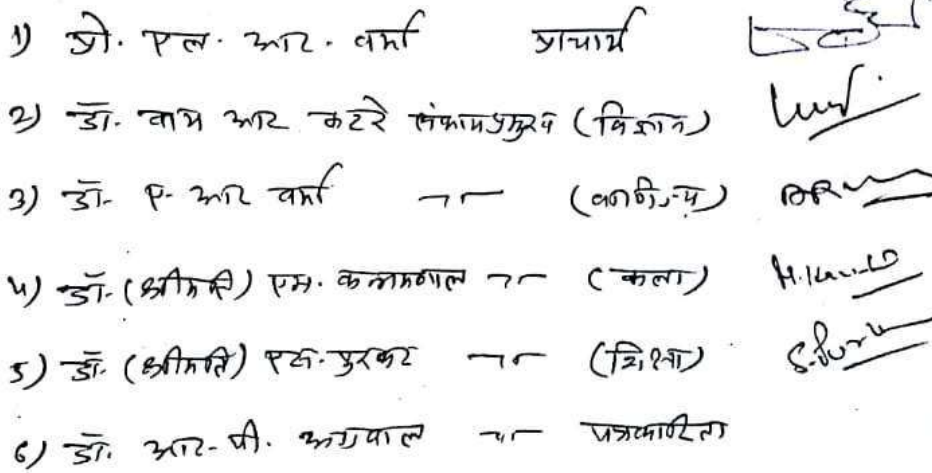 1) प्रो. एल. आर. वर्मा प्राचार्य
2) डॉ. वाय आर कटरे संकायप्रमुख (विज्ञान)
3) डॉ. ए. आर वर्मा —"— (वाणिज्य)
4) डॉ. (श्रीमति) एम. —"— (कला) M.
5) डॉ. (श्रीमति) एस. पुरकर —"— (शिक्षा) S.
6) डॉ. आर. पी. अग्रवाल —"— पत्रकारिता